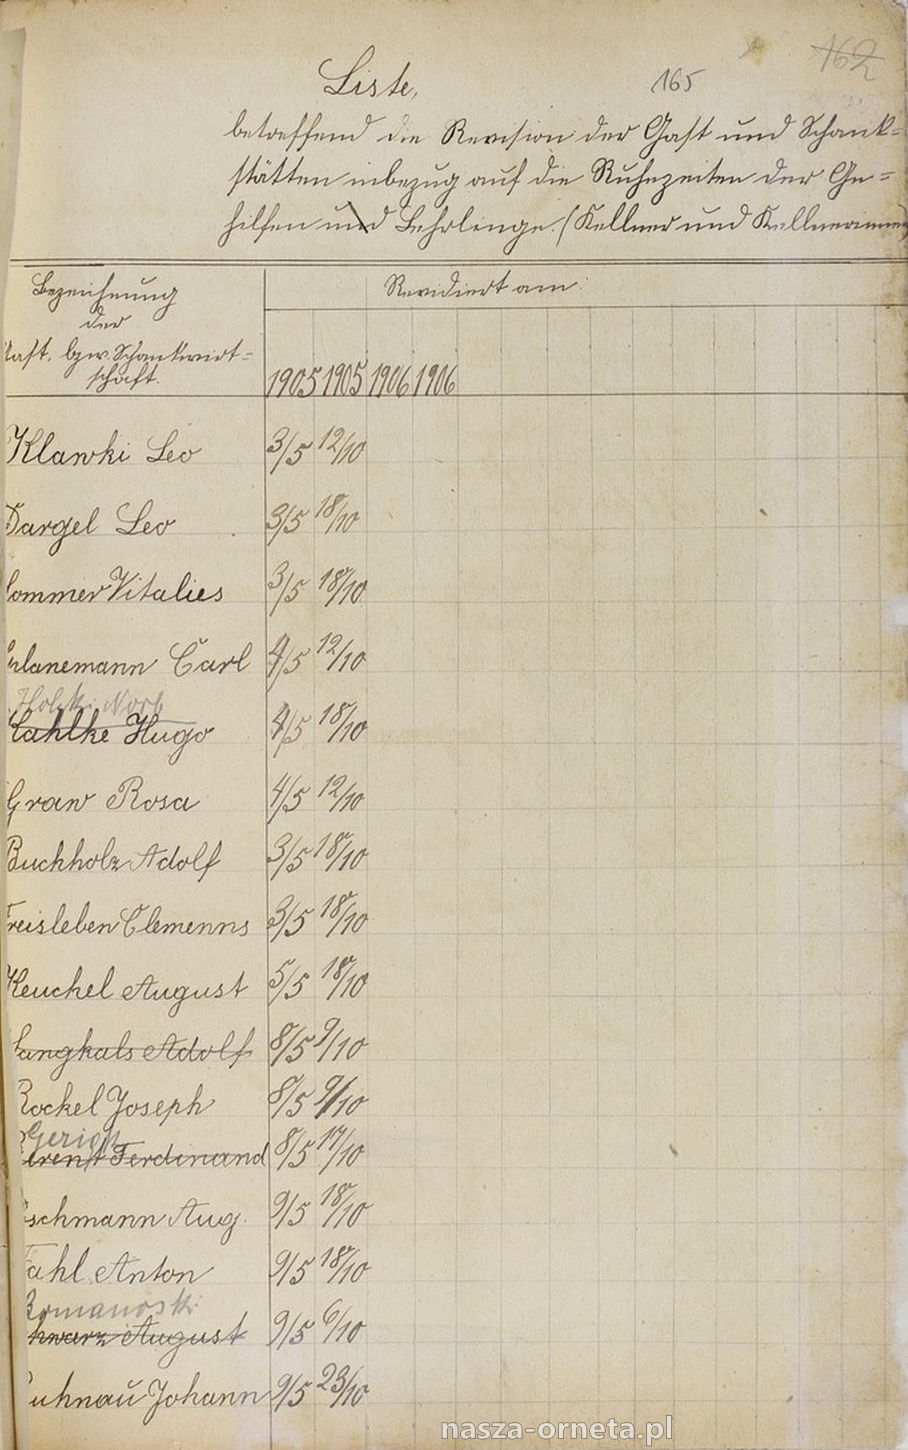 162
165
Liste,
betreffend die Revision der Gast und Schank=
stätten inbezug auf die Ruhezeiten der Ge=
hilfen und Lehrlinge. (Kellner und Kellnerinnen)
Bezeichnung
der
Gast, bzw. Schankwirt=
schaft.
Revidiert am:
1905 1905 1906 1906
Klawki Leo 3/5 12/10
Dargel Leo 3/5 18/10
Sommer Vitalies 3/5 18/10
Carl 4/5 12/10
Kahlke Hugo 4/5 18/10
Graw Rosa 4/5 12/10
Buchholz Adolf 3/5 18/10
Freisleben Clemenns 3/5 18/10
Keuchel August 5/5 18/10
Langkals Adolf 8/5 9/10
Rockel Joseph 8/5 9/10
Ferdinand 8/5 17/10
schmann Aug. 9/5 18/10
ahl Anton 9/5 18/10
Schwarz August 9/5 6/10
uhnau Johann 9/5 23/10
nasza-orneta.pl